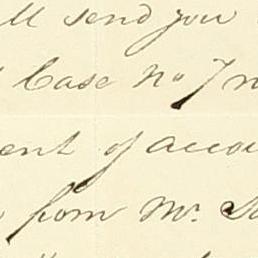 ll send you
Case No 7
ent of accou
from Mr.